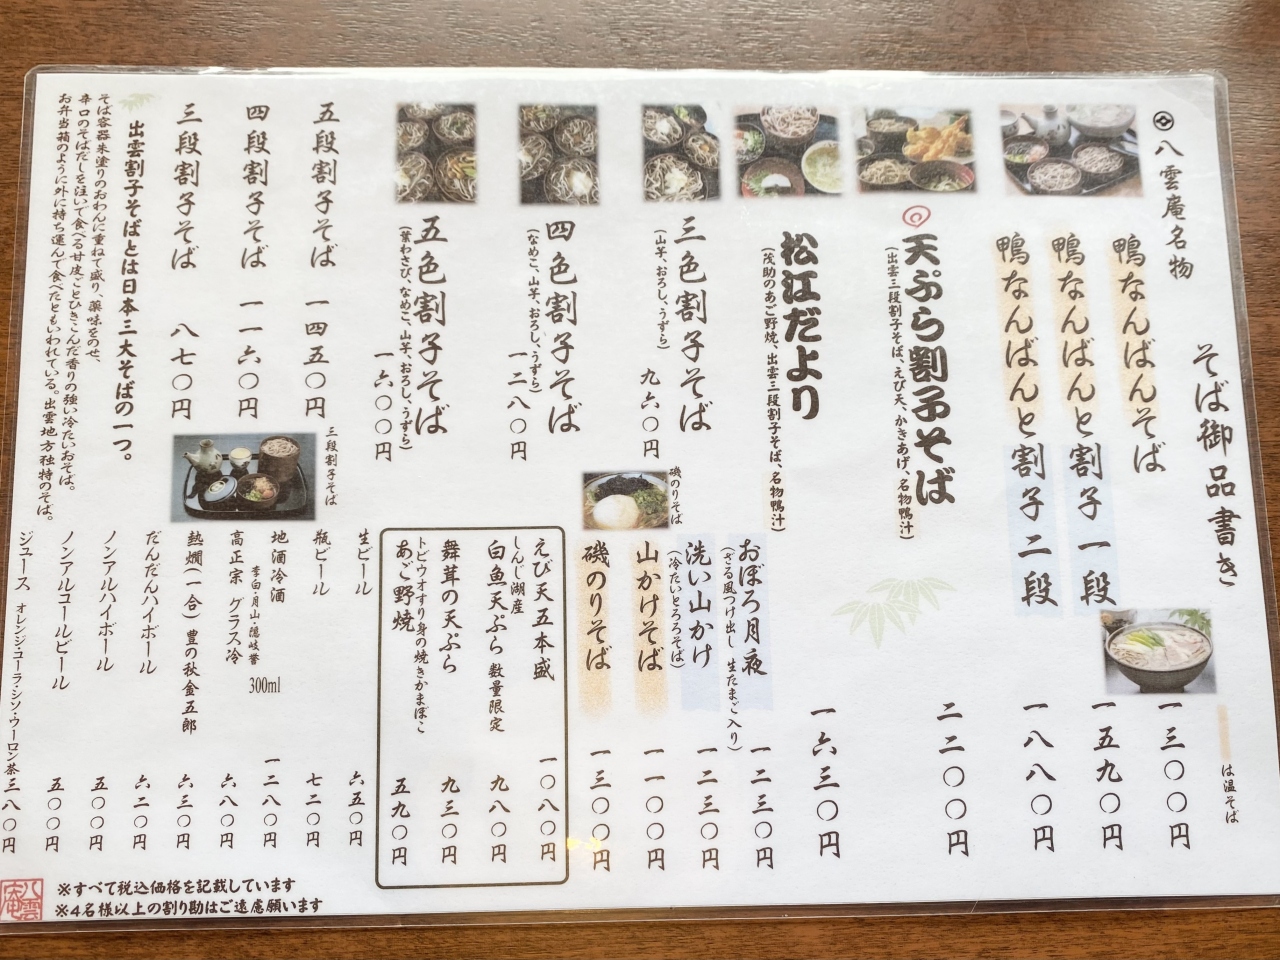 そば御品書き
は温そば
八雲庵名物
鴨なんばんそば 一三〇〇円
鴨なんばんと割子一段 一五九〇円
鴨なんばんと割子二段 一八八〇円
天ぷら割子そば 二二〇〇円
(出雲三段割子そば、えび天、かきあげ、名物鴨汁)
松江だより 一六三〇円
(茂助のあご野焼、出雲三段割子そば、名物鴨汁)
三色割子そば 九六〇円
(山芋、おろし、うずら)
四色割子そば 一二八〇円
(なめこ、山芋、おろし、うずら)
五色割子そば 一六〇〇円
(葉わさび、なめこ、山芋、おろし、うずら)
五段割子そば 一四五〇円
四段割子そば 一一六〇円
三段割子そば 八七〇円
出雲割子そばとは日本三大そばの一つ。
そば容器朱塗りのおわんに重ねて盛り、薬味をのせ、
辛口のそばだしを注いで食べる甘皮ごとひきこんだ香りの強い冷たいおそば。
お弁当箱のように外に持ち運んで食べたともいわれている。出雲地方独特のそば。
三段割子そば
磯のりそば
おぼろ月夜 一二三〇円
(ざる風つけ出し 生たまご入り)
洗い山かけ 一二三〇円
(冷たいとろろそば)
山かけそば 一一〇〇円
磯のりそば 一三〇〇円
えび天五本盛 一〇八〇円
しんじ湖産
白魚天ぷら 数量限定 九八〇円
舞茸の天ぷら 九三〇円
トビウオすり身の焼きかまぼこ
あご野焼 五九〇円
生ビール 六五〇円
瓶ビール 七二〇円
地酒冷酒 一二八〇円
李白・月山・隠岐誉 300ml
高正宗 グラス冷 六八〇円
熱燗(一合) 豊の秋金五郎 六三〇円
だんだんハイボール 六二〇円
ノンアルハイボール 五〇〇円
ノンアルコールビール 五〇〇円
ジュース オレンジ・コーラ・シソ・ウーロン茶 三八〇円
※すべて税込価格を記載しています
※4名様以上の割り勘はご遠慮願います
八雲庵